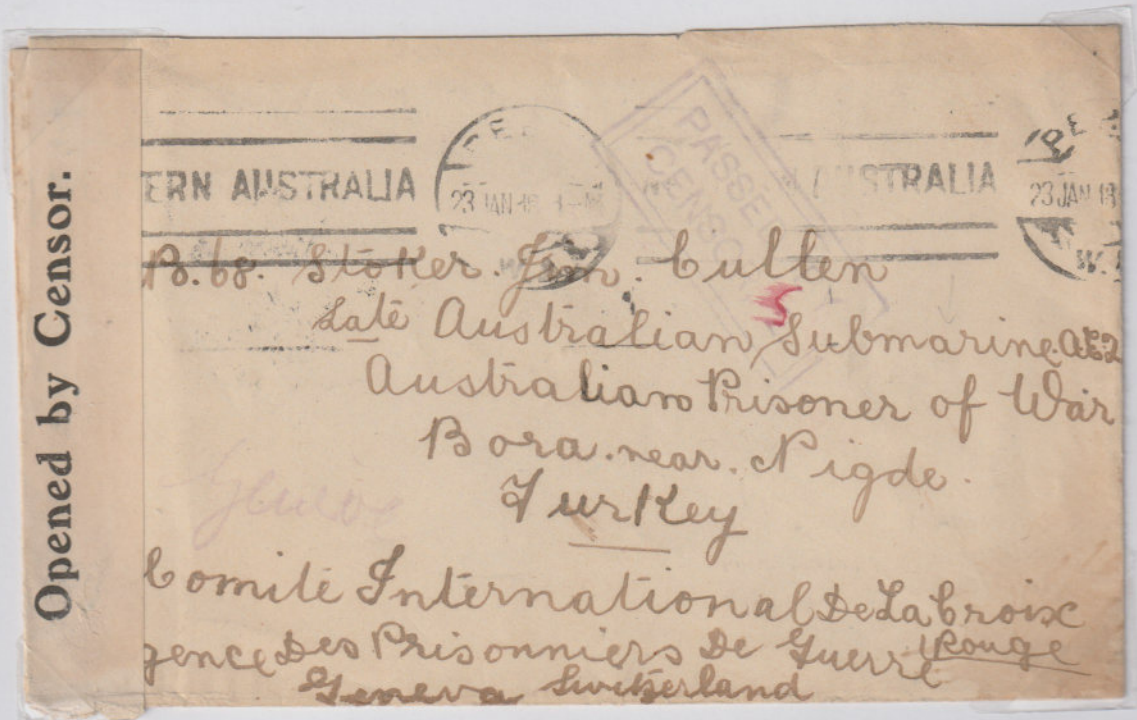 Opened by Censor.
ERN AUSTRALIA
23 JAN 18
PASSED
CENSOR
STRALIA
23 JAN 18
W.
B.68. Stoker. Jno. Cullen
5
Late Australian Submarine. AE2
Australian Prisoner of War
Bora. near. Nigde.
Turkey
Geneva
Comité International De La Croix
Rouge
gence Des Prisonniers De Guerre
Geneva Switzerland